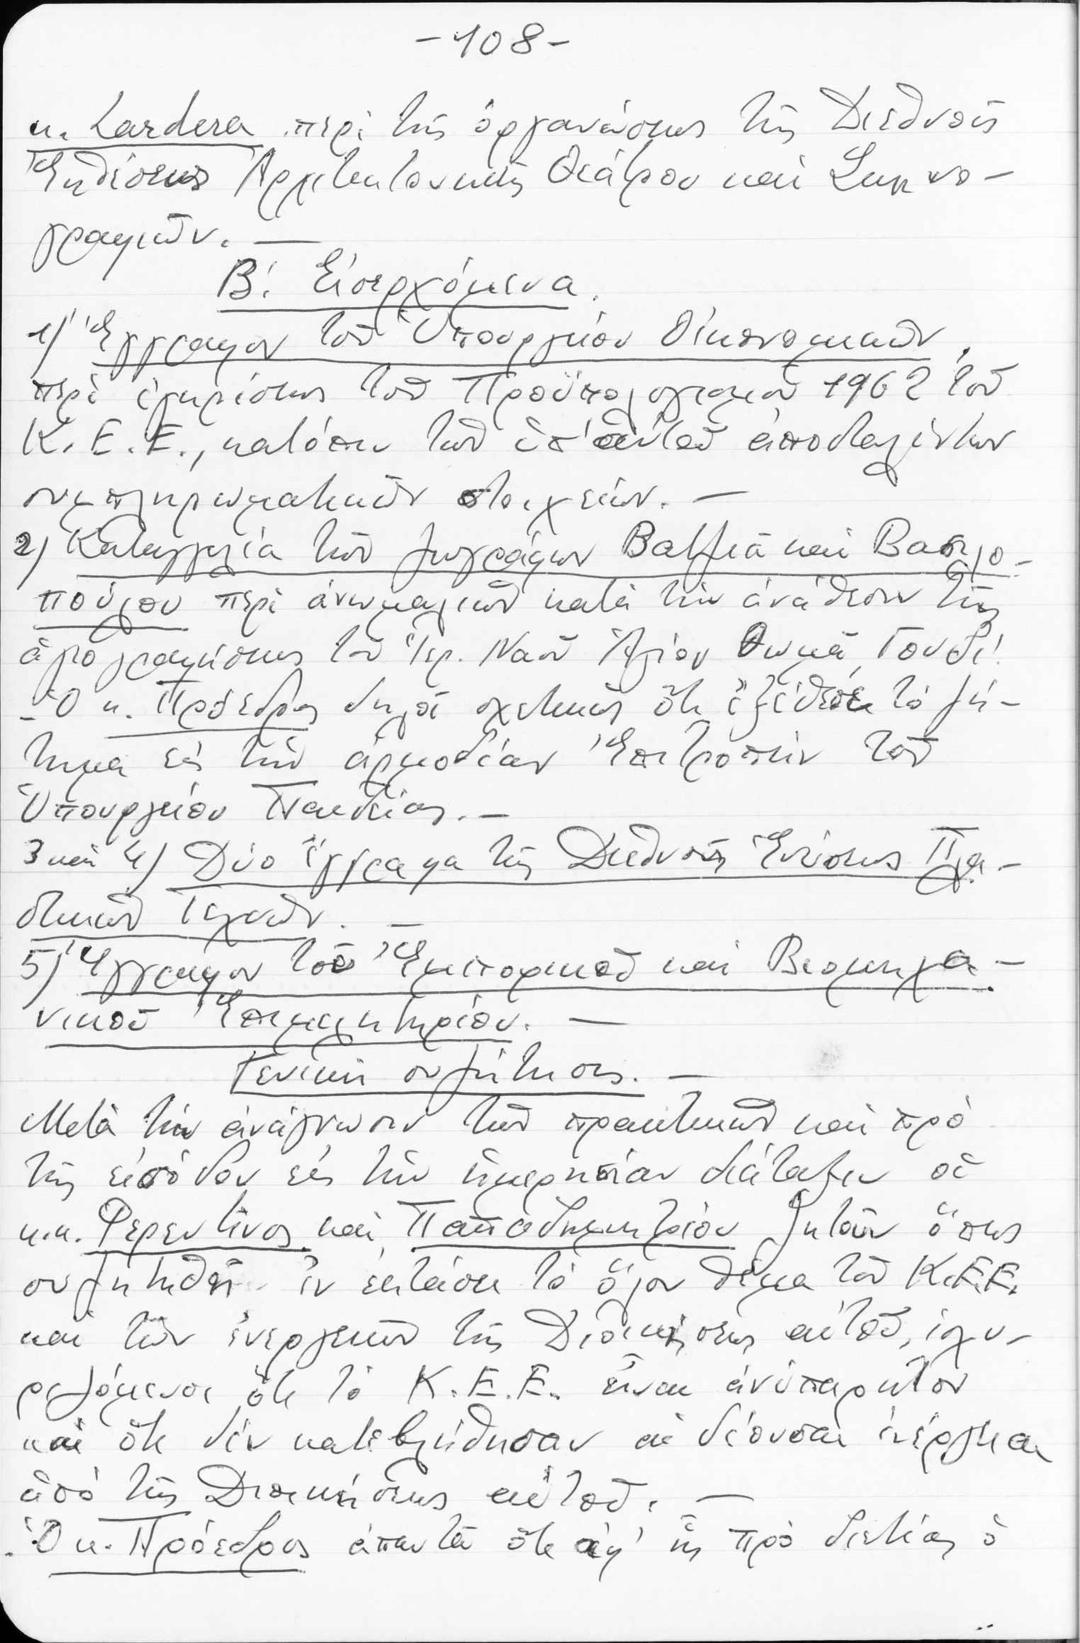 -108-
κ. Lardera περὶ τῆς ὀργανώσεως τῆς Διεθνοῦς
Ἐκθέσεως Ἀρχιτεκτονικῆς Θεάτρου καὶ Σκηνο-
γραφιῶν. —
Β΄. Εἰσερχόμενα.
1) Ἔγγραφον τοῦ Ὑπουργείου Οἰκονομικῶν,
περὶ ἐγκρίσεως τοῦ Προϋπολογισμοῦ 1962 τοῦ
Κ.Ε.Ε., κατόπιν τῶν ὑπ' αὐτοῦ ἀποσταλέντων
συμπληρωματικῶν στοιχείων. —
2) Καταγγελία τῶν ζωγράφων Βατζιᾶ καὶ Βασιλο-
πούλου περὶ ἀνωμαλιῶν κατὰ τὴν ἀνάθεσιν τῆς
ἁγιογραφήσεως τοῦ Ἱερ. Ναοῦ Ἁγίου Θωμᾶ Γουδί.
- Ὁ κ. Πρόεδρος δηλοῖ σχετικῶς ὅτι ἐξέθεσε τὸ ζή-
τημα εἰς τὴν ἁρμοδίαν Ἐπιτροπὴν τοῦ
Ὑπουργείου Παιδείας. —
3 καὶ 4) Δύο ἔγγραφα τῆς Διεθνοῦς Ἑνώσεως Πλα-
στικῶν Τεχνῶν. —
5) Ἔγγραφον τοῦ Ἐμπορικοῦ καὶ Βιομηχα-
νικοῦ Ἐπιμελητηρίου. —
Γενικὴ συζήτησις. —
Μετὰ τὴν ἀνάγνωσιν τῶν πρακτικῶν καὶ πρὸ
τῆς εἰσόδου εἰς τὴν ἡμερησίαν διάταξιν οἱ
κ.κ. Φερεντῖνος καὶ Παπαδημητρίου ζητοῦν ὅπως
συζητηθῆ ἐν ἐκτάσει τὸ ὅλον θέμα τοῦ Κ.Ε.Ε.
καὶ τῶν ἐνεργειῶν τῆς Διοικήσεως αὐτοῦ, ἰσχυ-
ριζόμενοι ὅτι τὸ Κ.Ε.Ε. εἶναι ἀνύπαρκτον
καὶ ὅτι δὲν κατεβλήθησαν αἱ δέουσαι ἐνέργειαι
ἀπὸ τῆς Διοικήσεως αὐτοῦ. —
- Ὁ κ. Πρόεδρος ἀπαντᾶ ὅτι ἀφ' ἧς πρὸ διετίας ὁ